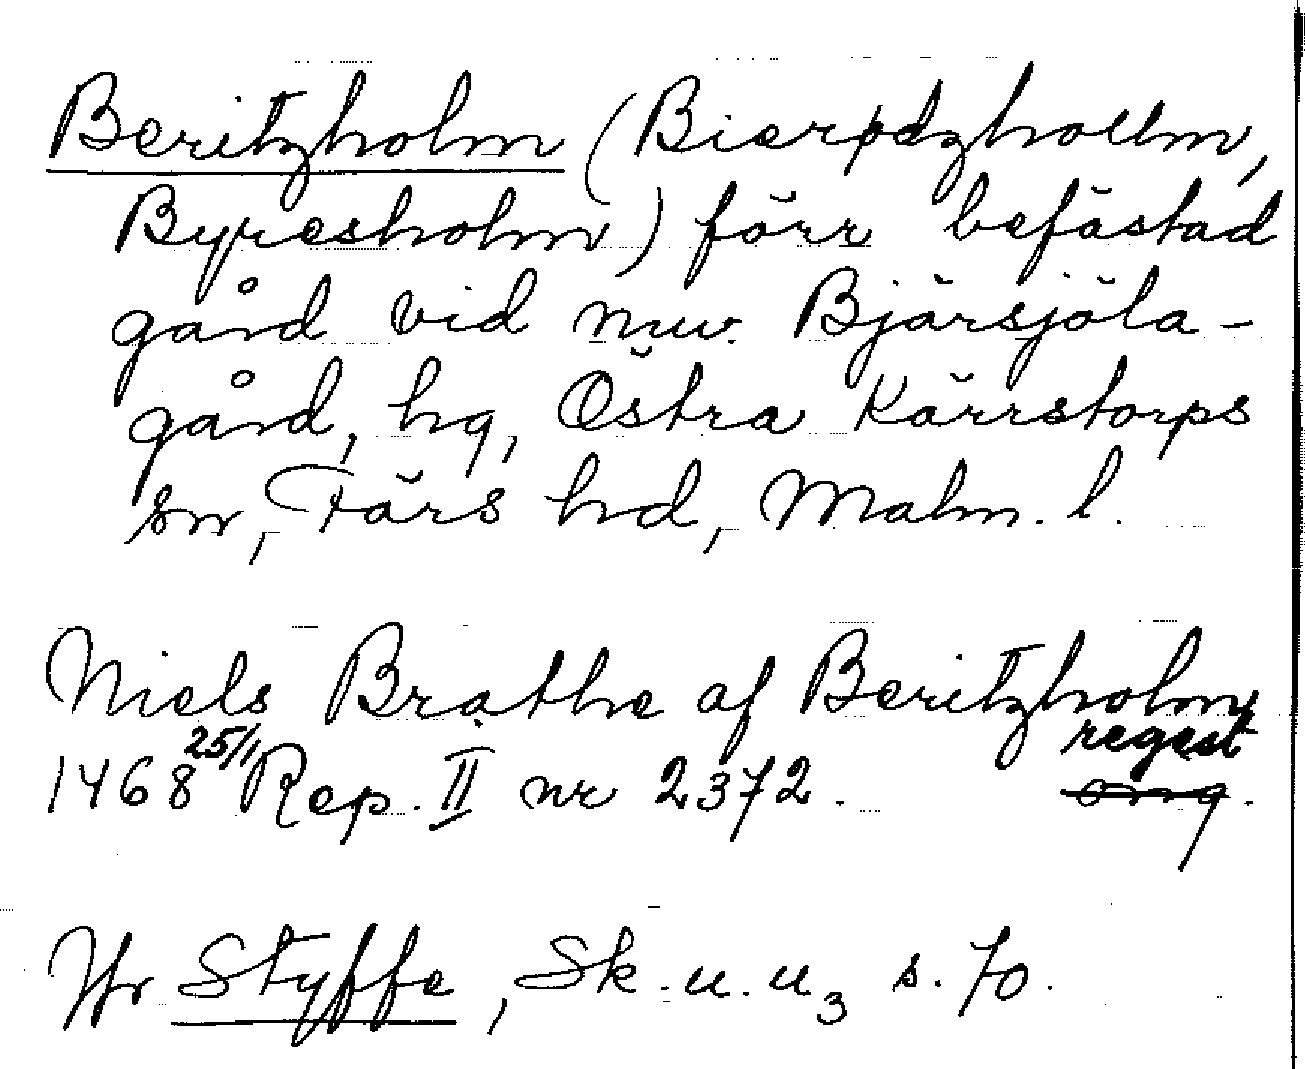 Beritzholm (Bierpdzhollm,
Byresholm) förr befästad
gård vid nuv. Bjärsjöla-
gård, hg, Östra Kärrstorps
sn, Färs hd, Malm. l.
Niels Brathe af Beritzholm
1468 25/1 Rep. II nr 2372. regest omg.
Jfr Styffe, Sk. u. u3 s. 70.